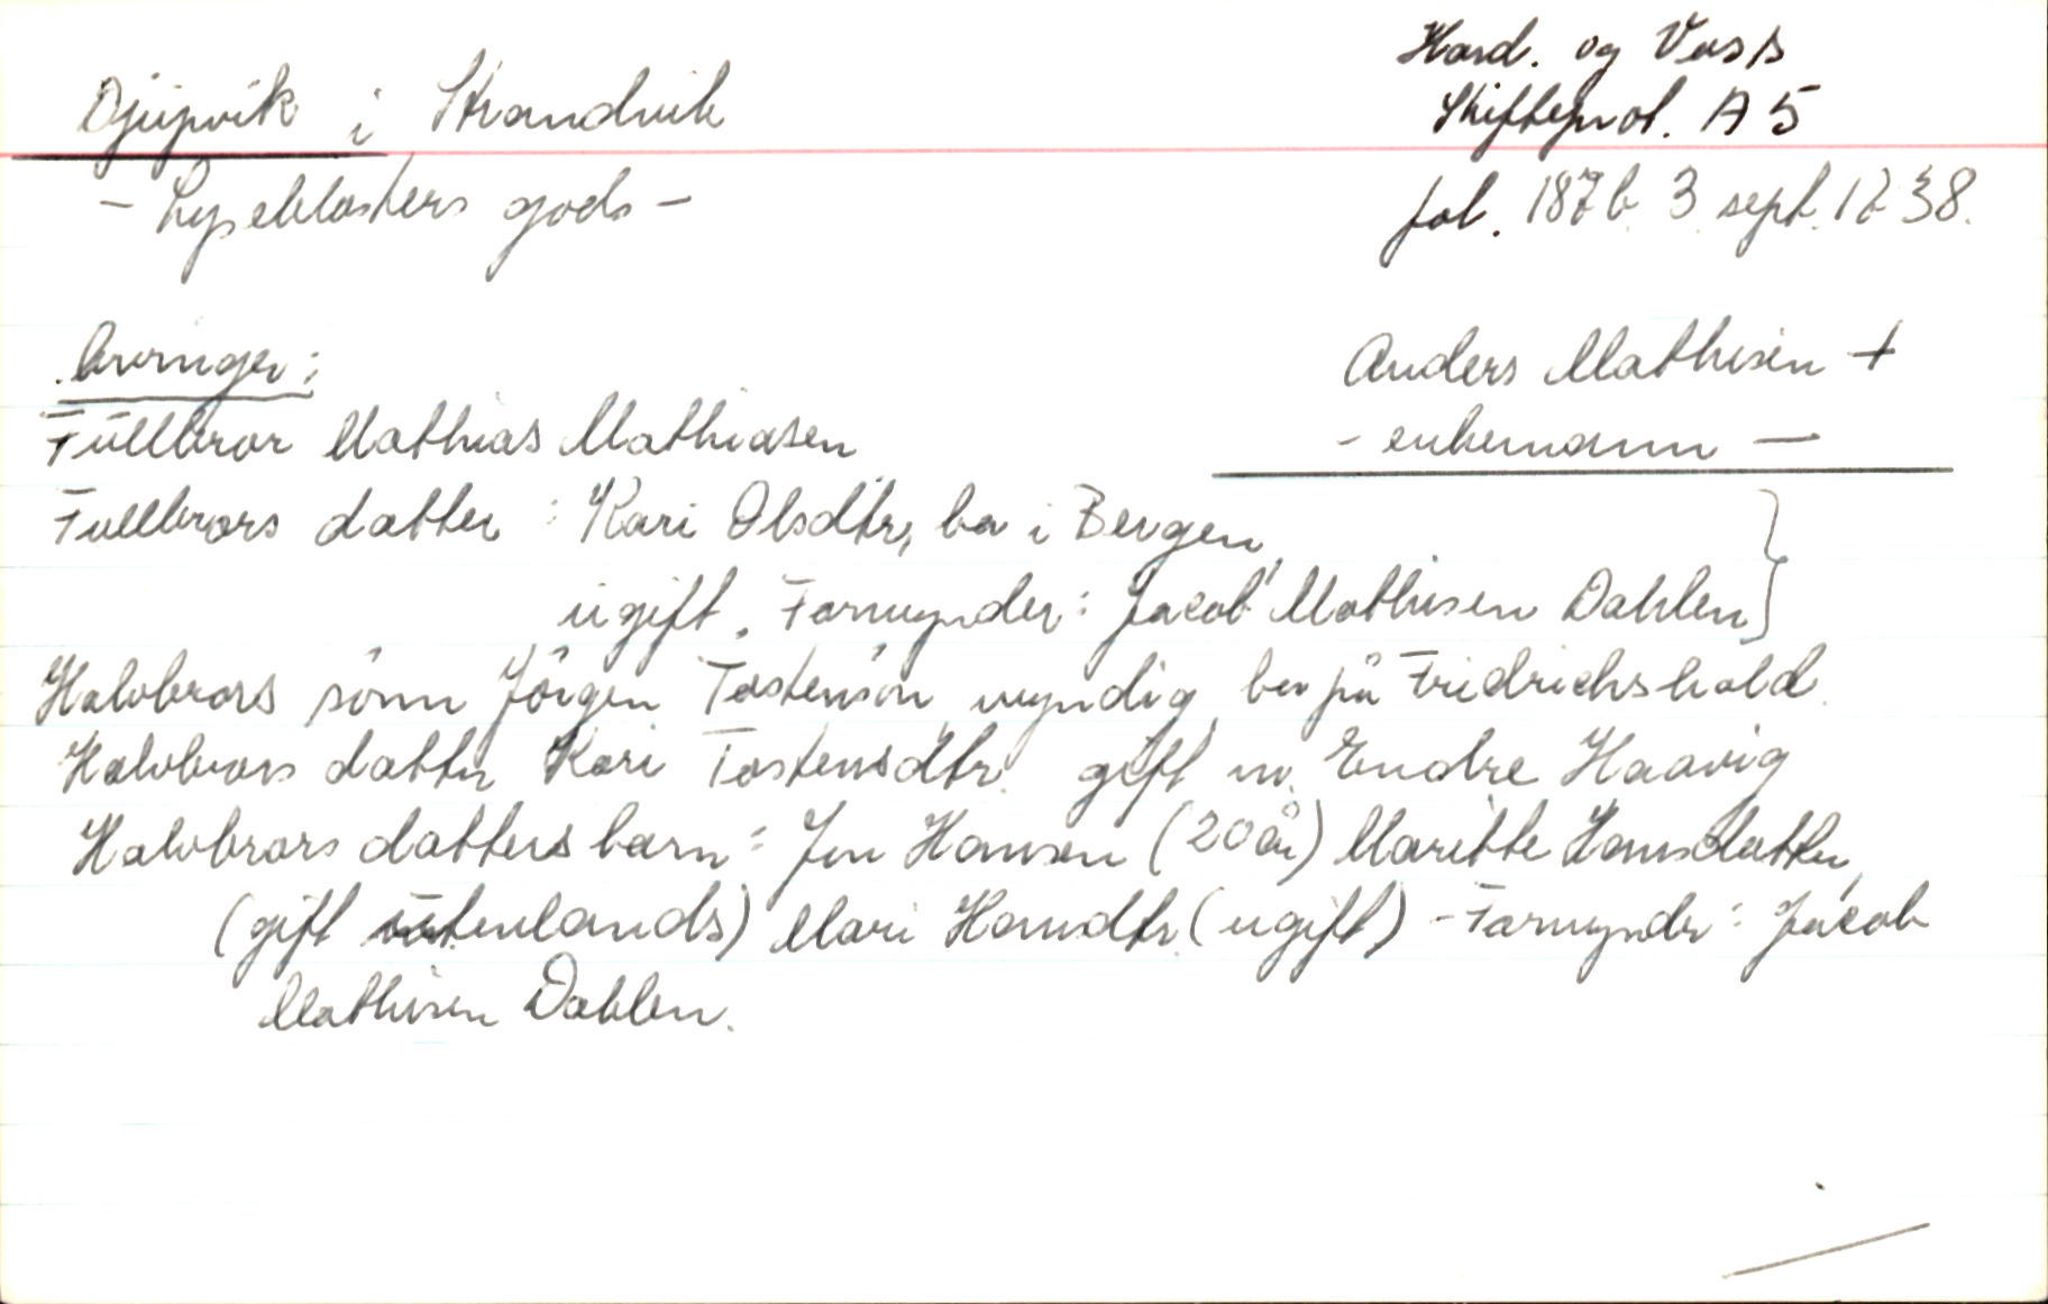 Djupvik i Strandvik
Hard. og Voss
Skifteprot. A 5
- Lyseklosters gods -
fol. 187b 3 sept. 1738.
Arvinger:
Anders Mathisen +
Fullbror Mathias Mathiasen
- enkemann -
Fullbrors datter : Kari Olsdtr, bor i Bergen,
ugift. Formynder: Jacob Mathisen Dahlen }
Halvbrors sønn Jörgen Tostensön myndig bor på Fridrichshald.
Halvbrors datter Kari Tostensdtr. gift m. Endre Haavig
Halvbrors datters barn: Jon Hansen (20 år) Maritte Hansdatter,
(gift utenlands) Mari Hansdtr. (ugift) - Formyndr: Jacob
Mathisen Dahlen.